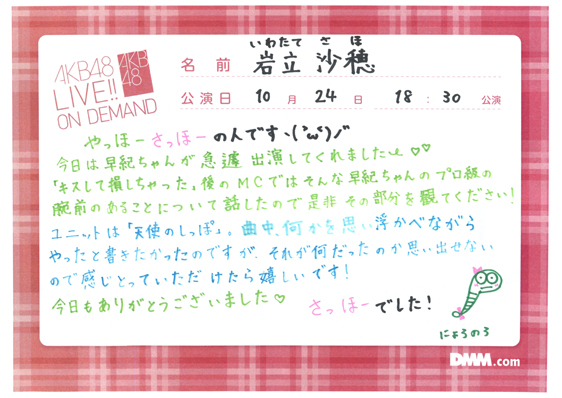 AKB48
LIVE!!
ON DEMAND
AKB
48
いわたて さほ
名前 岩立 沙穂
公演日 10月 24日 18:30 公演
やっほーさっほーの人ですヽ(´ω`)ノ
今日は早紀ちゃんが急遽出演してくれました♡♡
「キスして損しちゃった」後のMCではそんな早紀ちゃんのプロ級の
腕前のあることについて話したので是非その部分を観てください!
ユニットは「天使のしっぽ」。曲中、何かを思い浮かべながら
やったと書きたかったのですが、それが何だったのか思い出せない
ので感じとっていただけたら嬉しいです!
今日もありがとうございました♡
さっほーでした!
にょろのろ
DMM.com